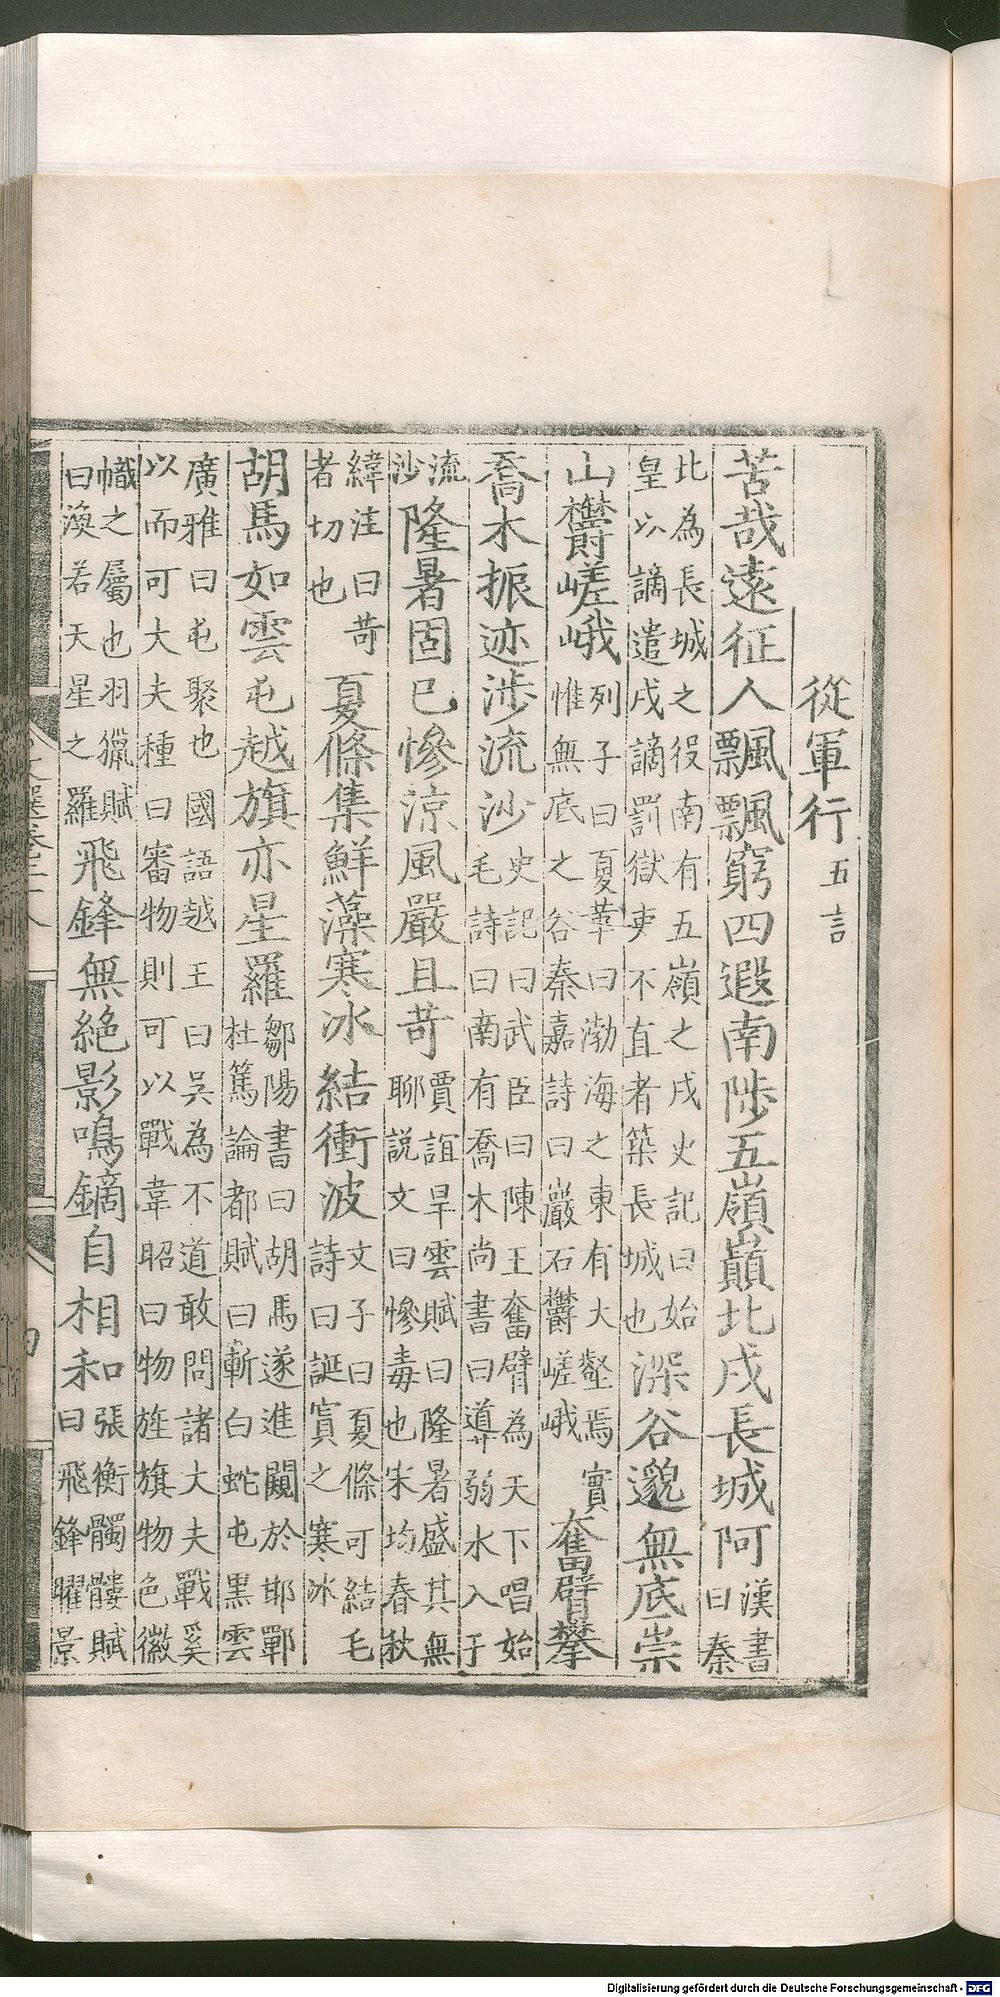 從軍行五言
苦哉遠征人飄飄窮四遐南陟五嶺巓北戍長城阿漢書曰秦
北為長城之役南有五嶺之戍史記曰始皇以謫遣戍謫罰獄吏不直者築長城也深谷邈無底崇
山鬱嵯峨列子曰夏革曰渤海之東有大壑焉實惟無底之谷秦嘉詩曰巖石鬱嵯峨奮臂攀
喬木振迹涉流沙史記曰武臣曰陳王奮臂為天下唱始毛詩曰南有喬木尚書曰導弱水入于
流沙隆暑固已慘涼風嚴且苛賈誼旱雲賦曰隆暑盛其無聊說文曰慘毒也宋均春秋
緯注曰苛者切也夏條集鮮藻寒冰結衝波文子曰夏條可結毛詩曰誕寘之寒冰
胡馬如雲屯越旗亦星羅鄒陽書曰胡馬遂進闚於邯鄲杜篤論都賦曰斬白蛇屯黑雲
廣雅曰屯聚也國語越王曰吳為不道敢問諸大夫戰奚以而可大夫種曰審物則可以戰韋昭曰物旌旗物色徽
幟之屬也羽獵賦曰渙若天星之羅飛鋒無絕影鳴鏑自相和張衡髑髏賦曰飛鋒曜景
Digitalisierung gefördert durch die Deutsche Forschungsgemeinschaft - DFG